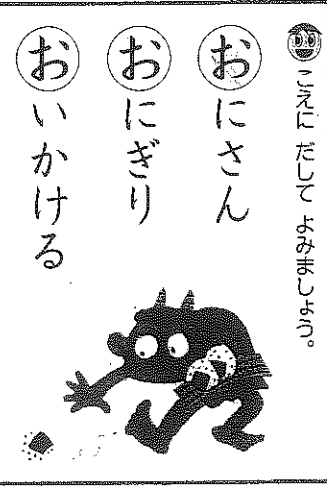 こえに だして よみましょう。
おにさん
おにぎり
おいかける